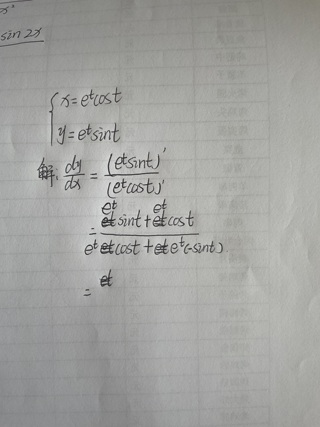 x²
sin 2x
{ x = eᵗcost
y = eᵗsint
解: dy/dx = (eᵗsint)′ / (eᵗcost)′
= eᵗ sint + eᵗ cost / eᵗ cost + eᵗ(-sint)
=